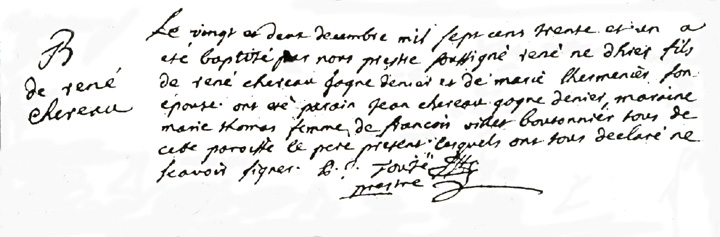 B
de rené
chereau
Le vingt et deux decembre mil sept cens trente et un a
eté baptisé par nous prestre soussigné rené né d'hier fils
de rené chereau gagne denier et de marie lhermenier son
epouse ont eté parain Jean chereau gagne denier, maraine
marie thomas femme de francois boutonnier tous de
cette paroisse le pere present lesquels ont tous declaré ne
scavoir signer.
prestre